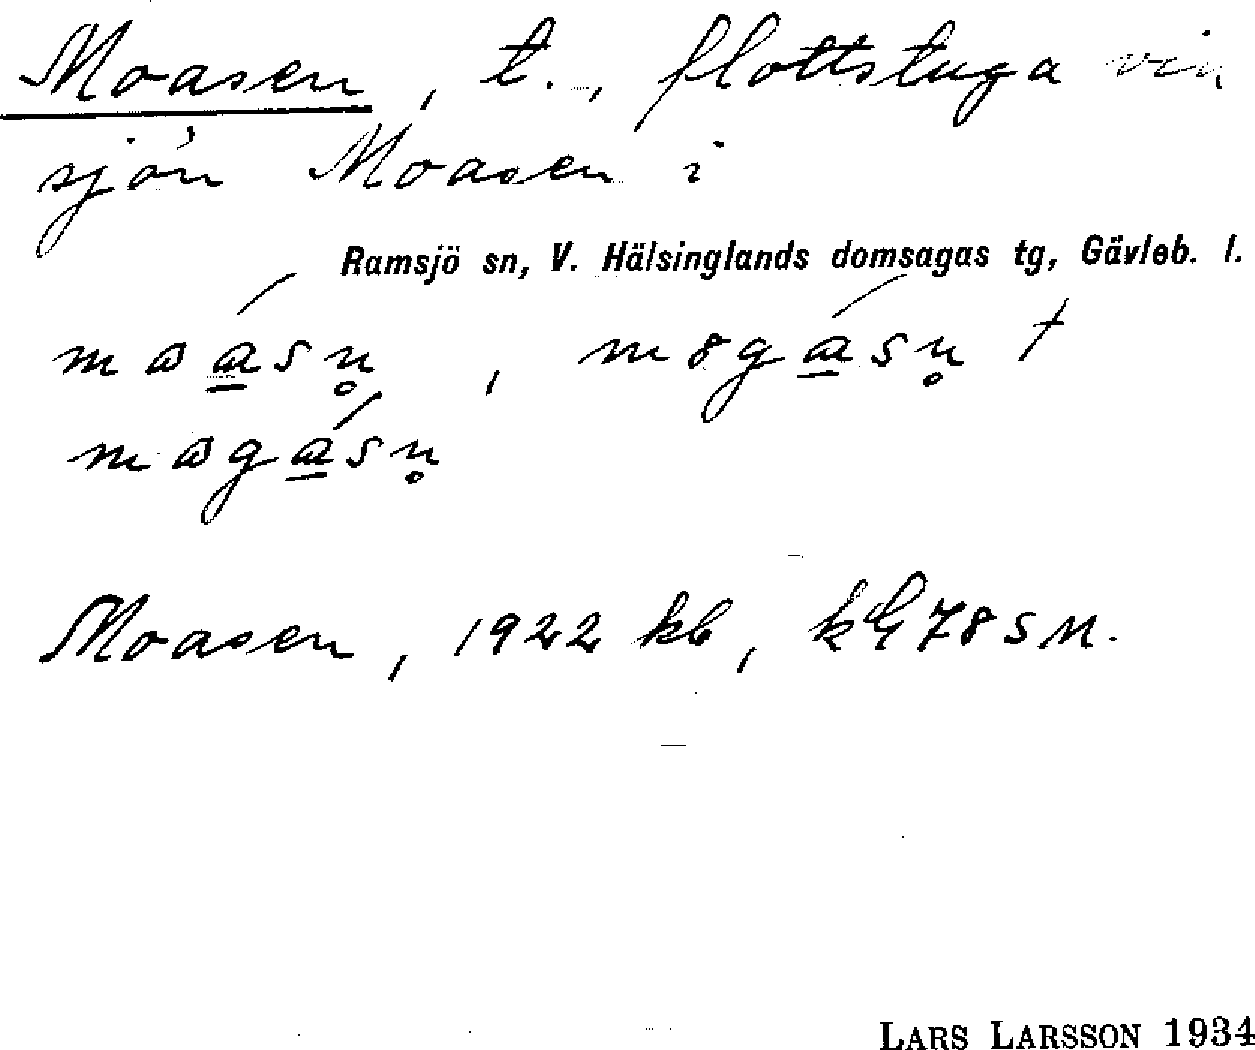 Moasen, t., flottstuga vid
sjön Moasen i
Ramsjö sn, V. Hälsinglands domsagas tg, Gävleb. l.
Moasen, 1922 kb, kG 78 s M.
LARS LARSSON 1934